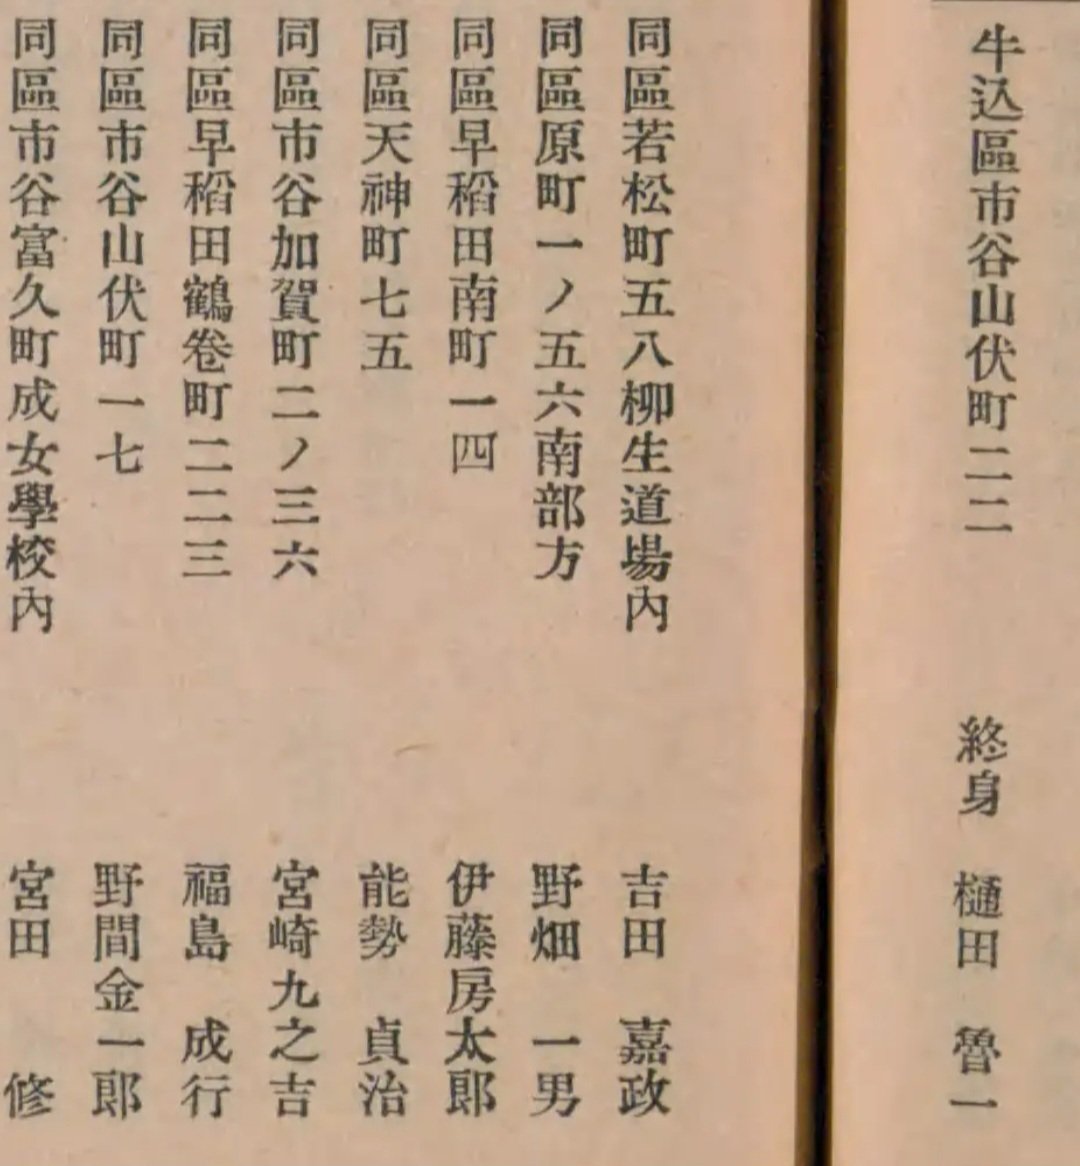 牛込區市谷山伏町二二　終身　樋田　魯一
同區若松町五八柳生道場內　吉田　嘉政
同區原町一ノ五六南部方　野畑　一男
同區早稻田南町一四　伊藤房太郎
同區天神町七五　能勢　貞治
同區市谷加賀町二ノ三六　宮崎九之吉
同區早稻田鶴卷町二二三　福島　成行
同區市谷山伏町一七　野間金一郎
同區市谷富久町成女學校內　宮田　修